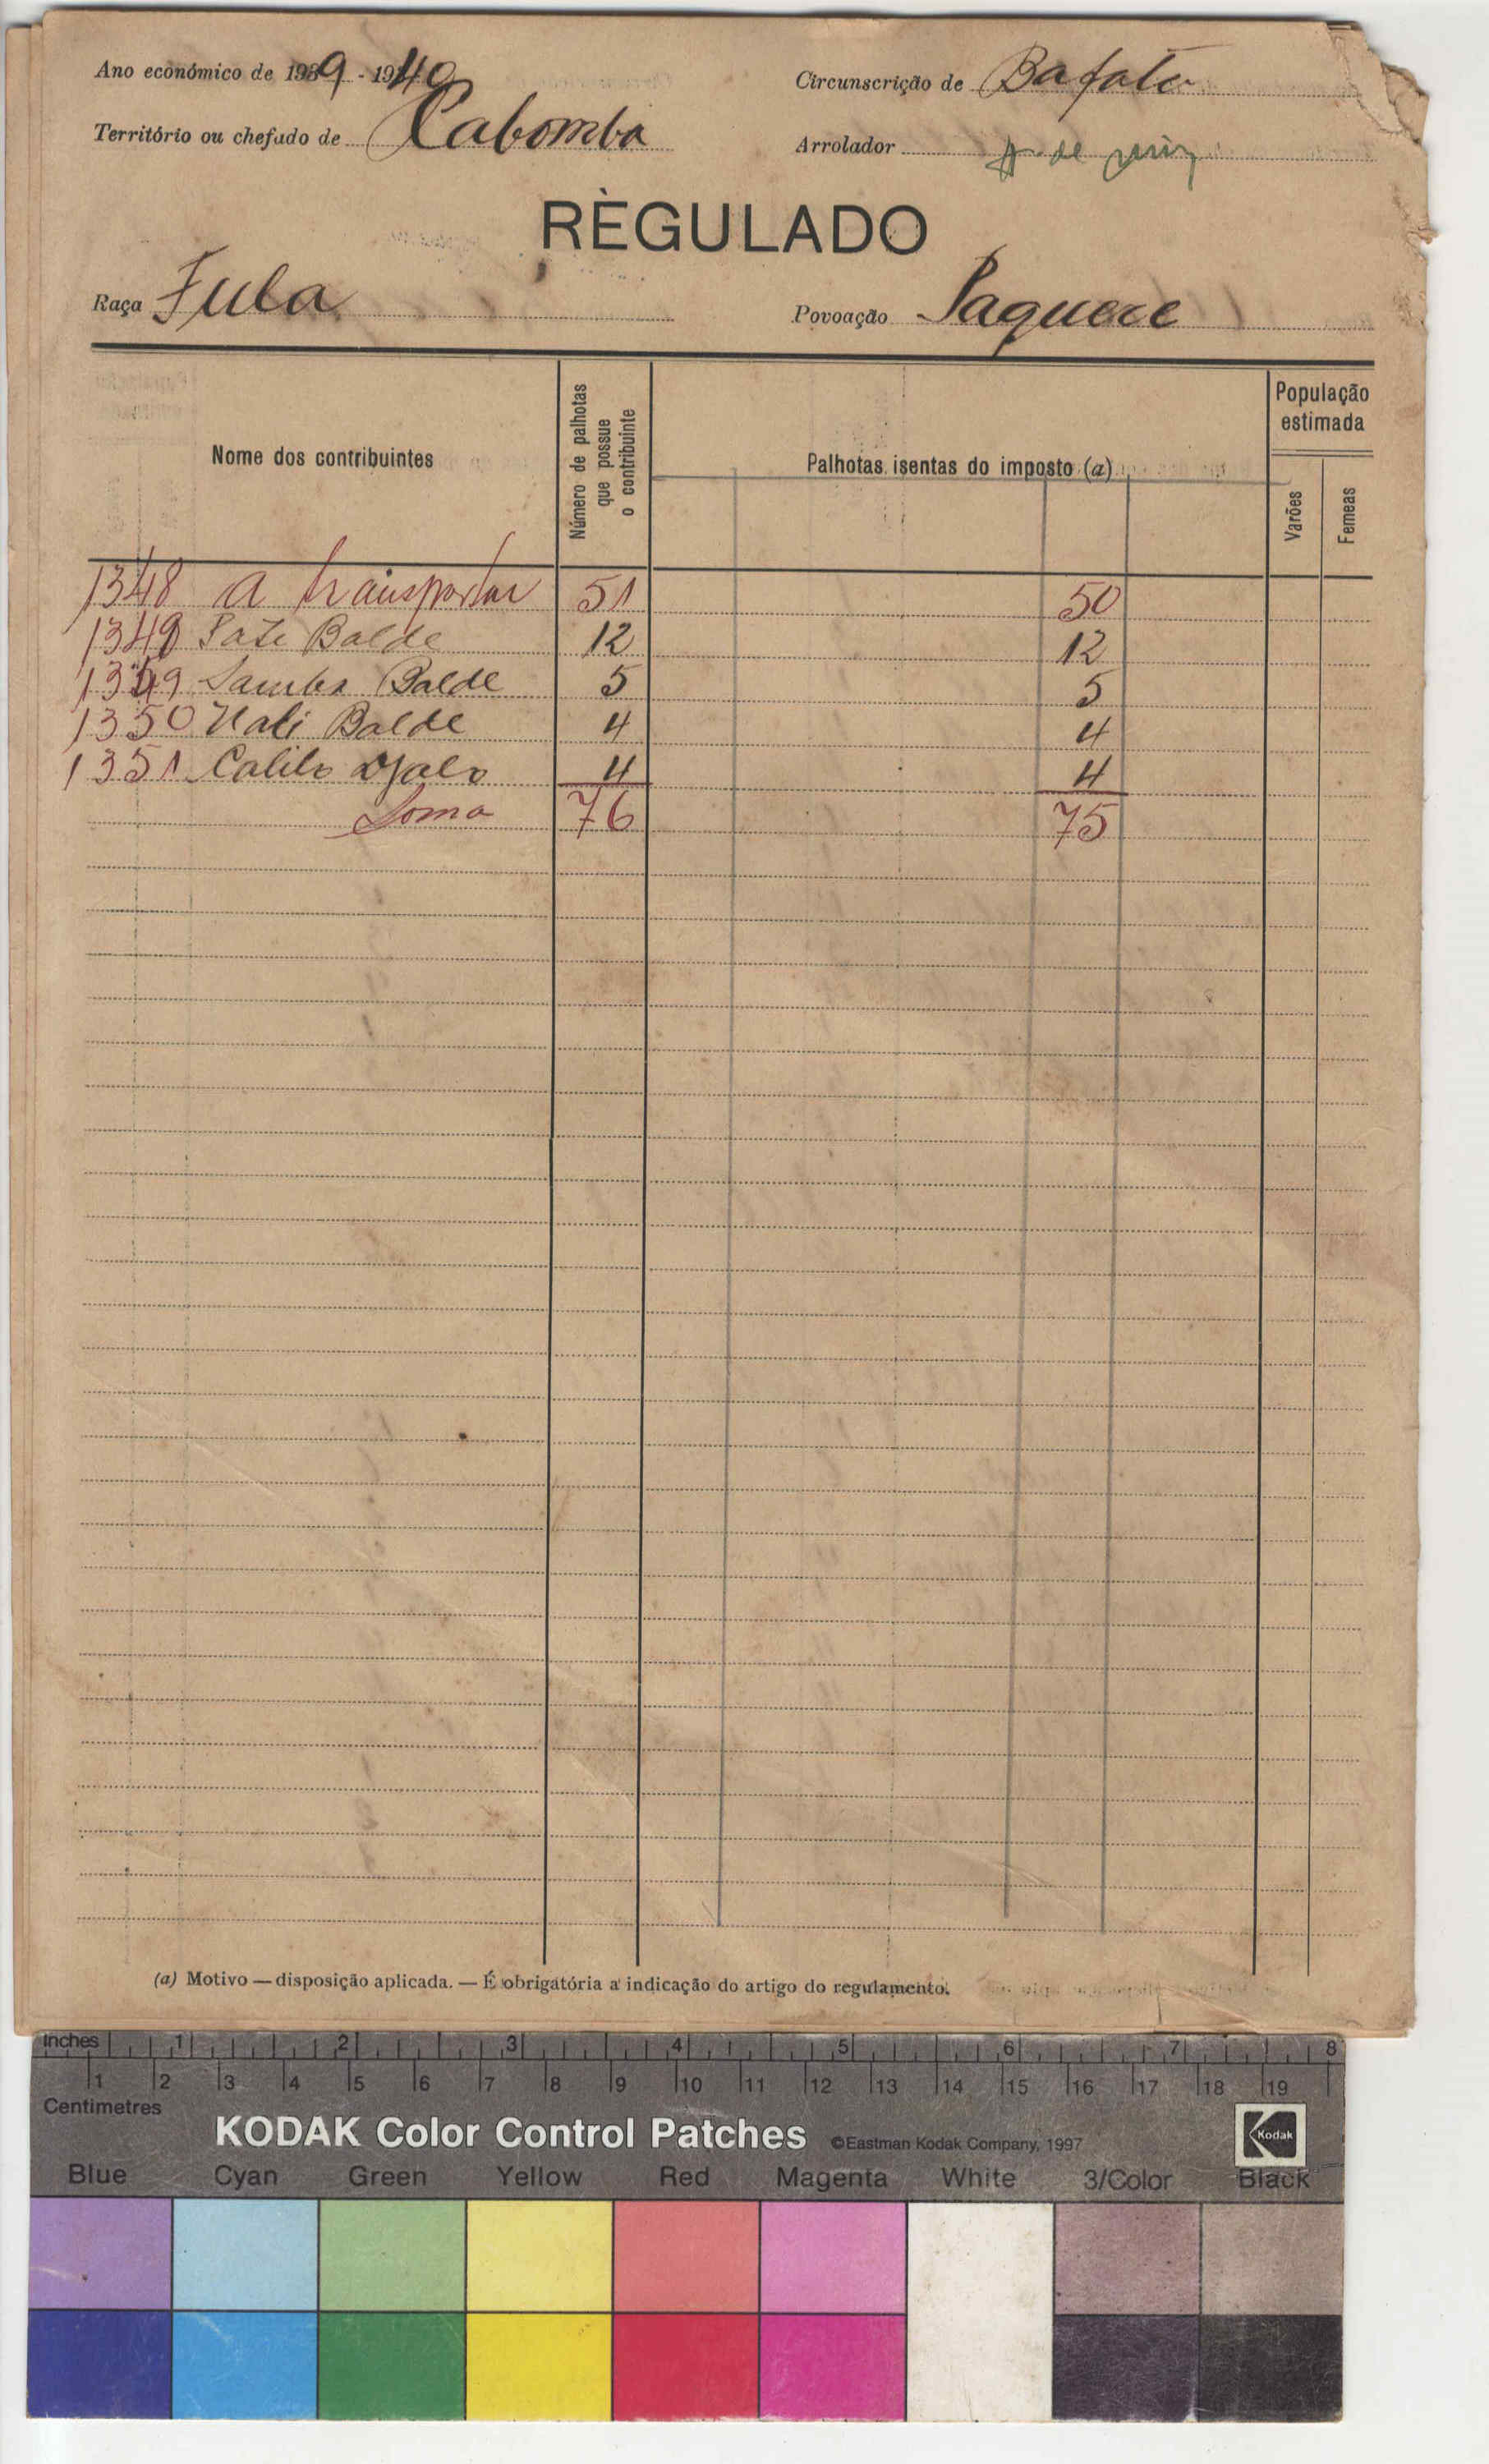 Ano económico de 1939 - 1940
Circunscrição de Bafata
Território ou chefado de Cabomba
Arrolador A. de
RÈGULADO
Raça Fula
Povoação Paquere
Nome dos contribuintes
Número de palhotas que possue o contribuinte
Palhotas isentas do imposto (a)
População estimada
Varões
Femeas
1348 A transportar 51 50
1348 Sate Balde 12 12
1349 Samba Balde 5 5
1350 Uali Balde 4 4
1351 Calilo Djalo 4 4
Soma 76 75
(a) Motivo — disposição aplicada. — É obrigatória a indicação do artigo do regulamento.
inches 1 2 3 4 5 6 7 8
1 2 3 4 5 6 7 8 9 10 11 12 13 14 15 16 17 18 19
Centimetres
KODAK Color Control Patches ©Eastman Kodak Company, 1997 Kodak
Blue Cyan Green Yellow Red Magenta White 3/Color Black